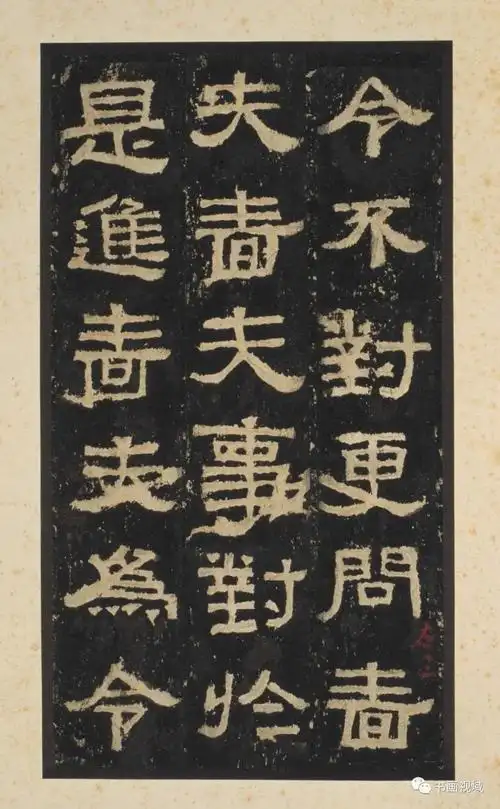 令不對更問嗇
夫嗇夫事對於
是進嗇夫為令
书画视域